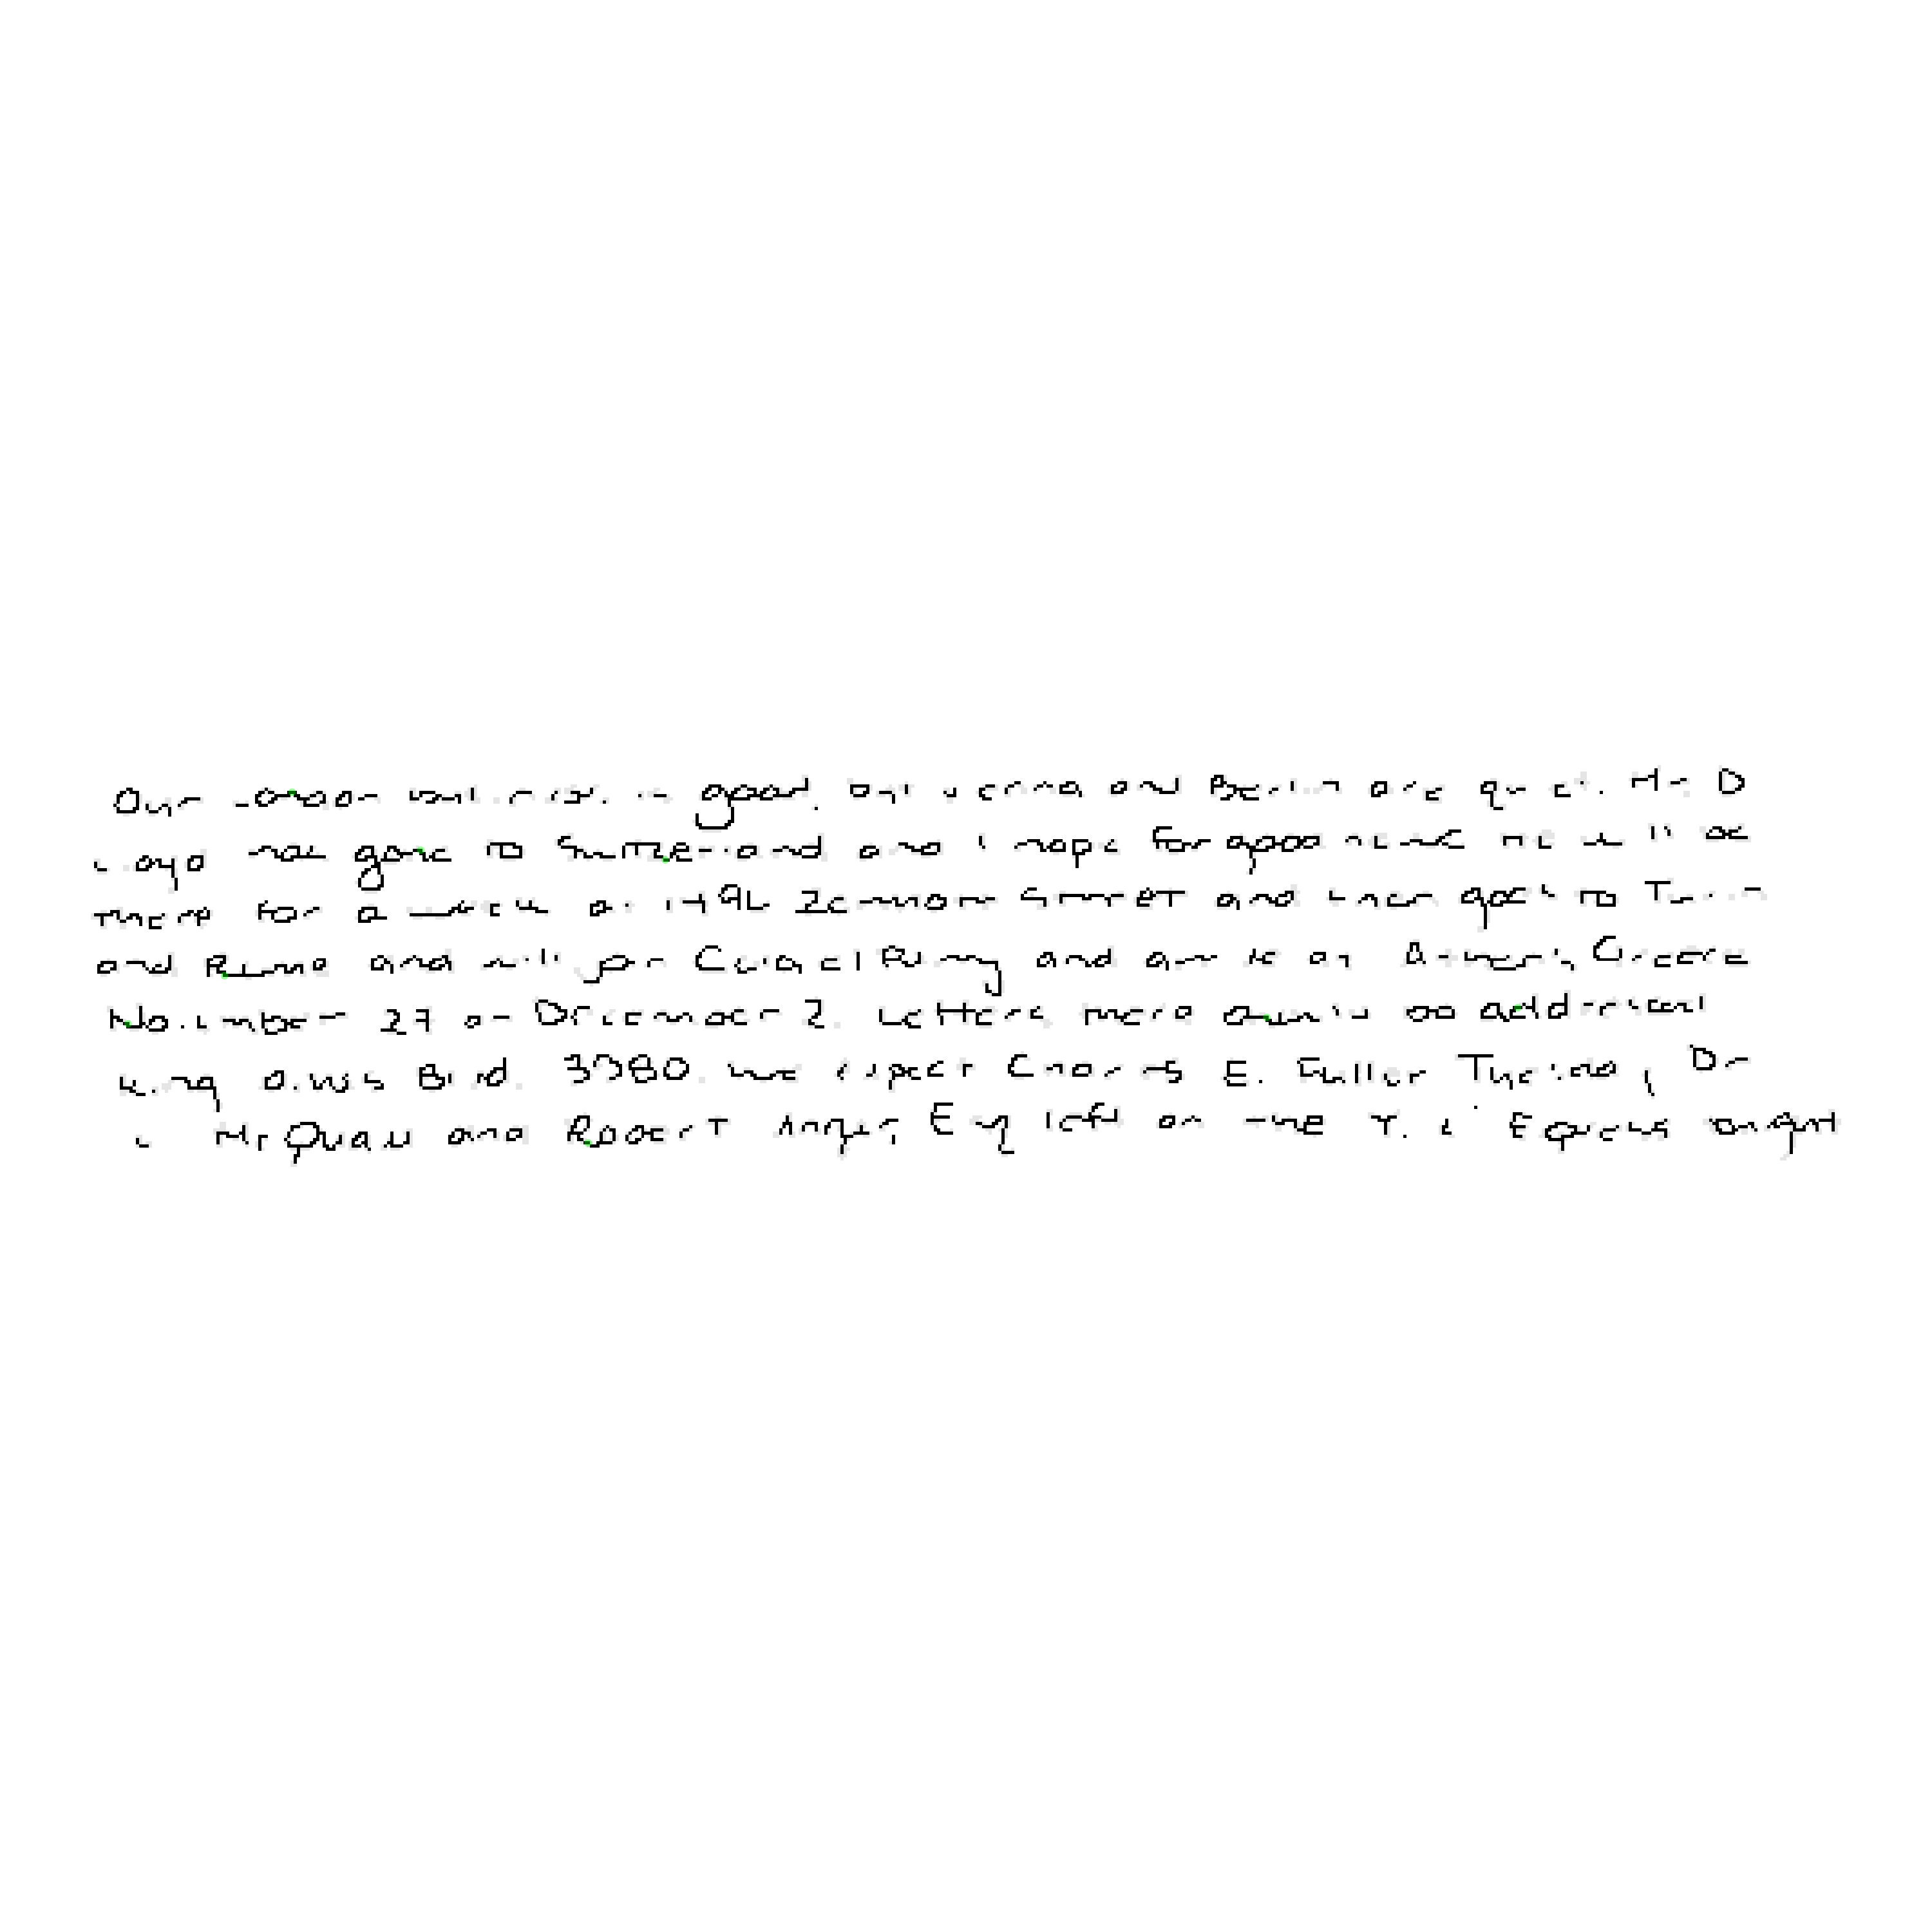 Our London business is good, but Vienna and Berlin are quiet. Mr. D.
Lloyd has gone to Switzerland and I hope for good news. He will be
there for a week at 1496 Zermott Street and then goes to Turin
and Rome and will join Colonel Parry and arrive at Athens, Greece
November 27 or December 2. Letters there should be addressed
King James Blvd. 3580. We expect Charles E. Fuller Tuesday, Dr.
L. McQuaid and Robert Unger, Esq. left on the Y. X. Express tonight